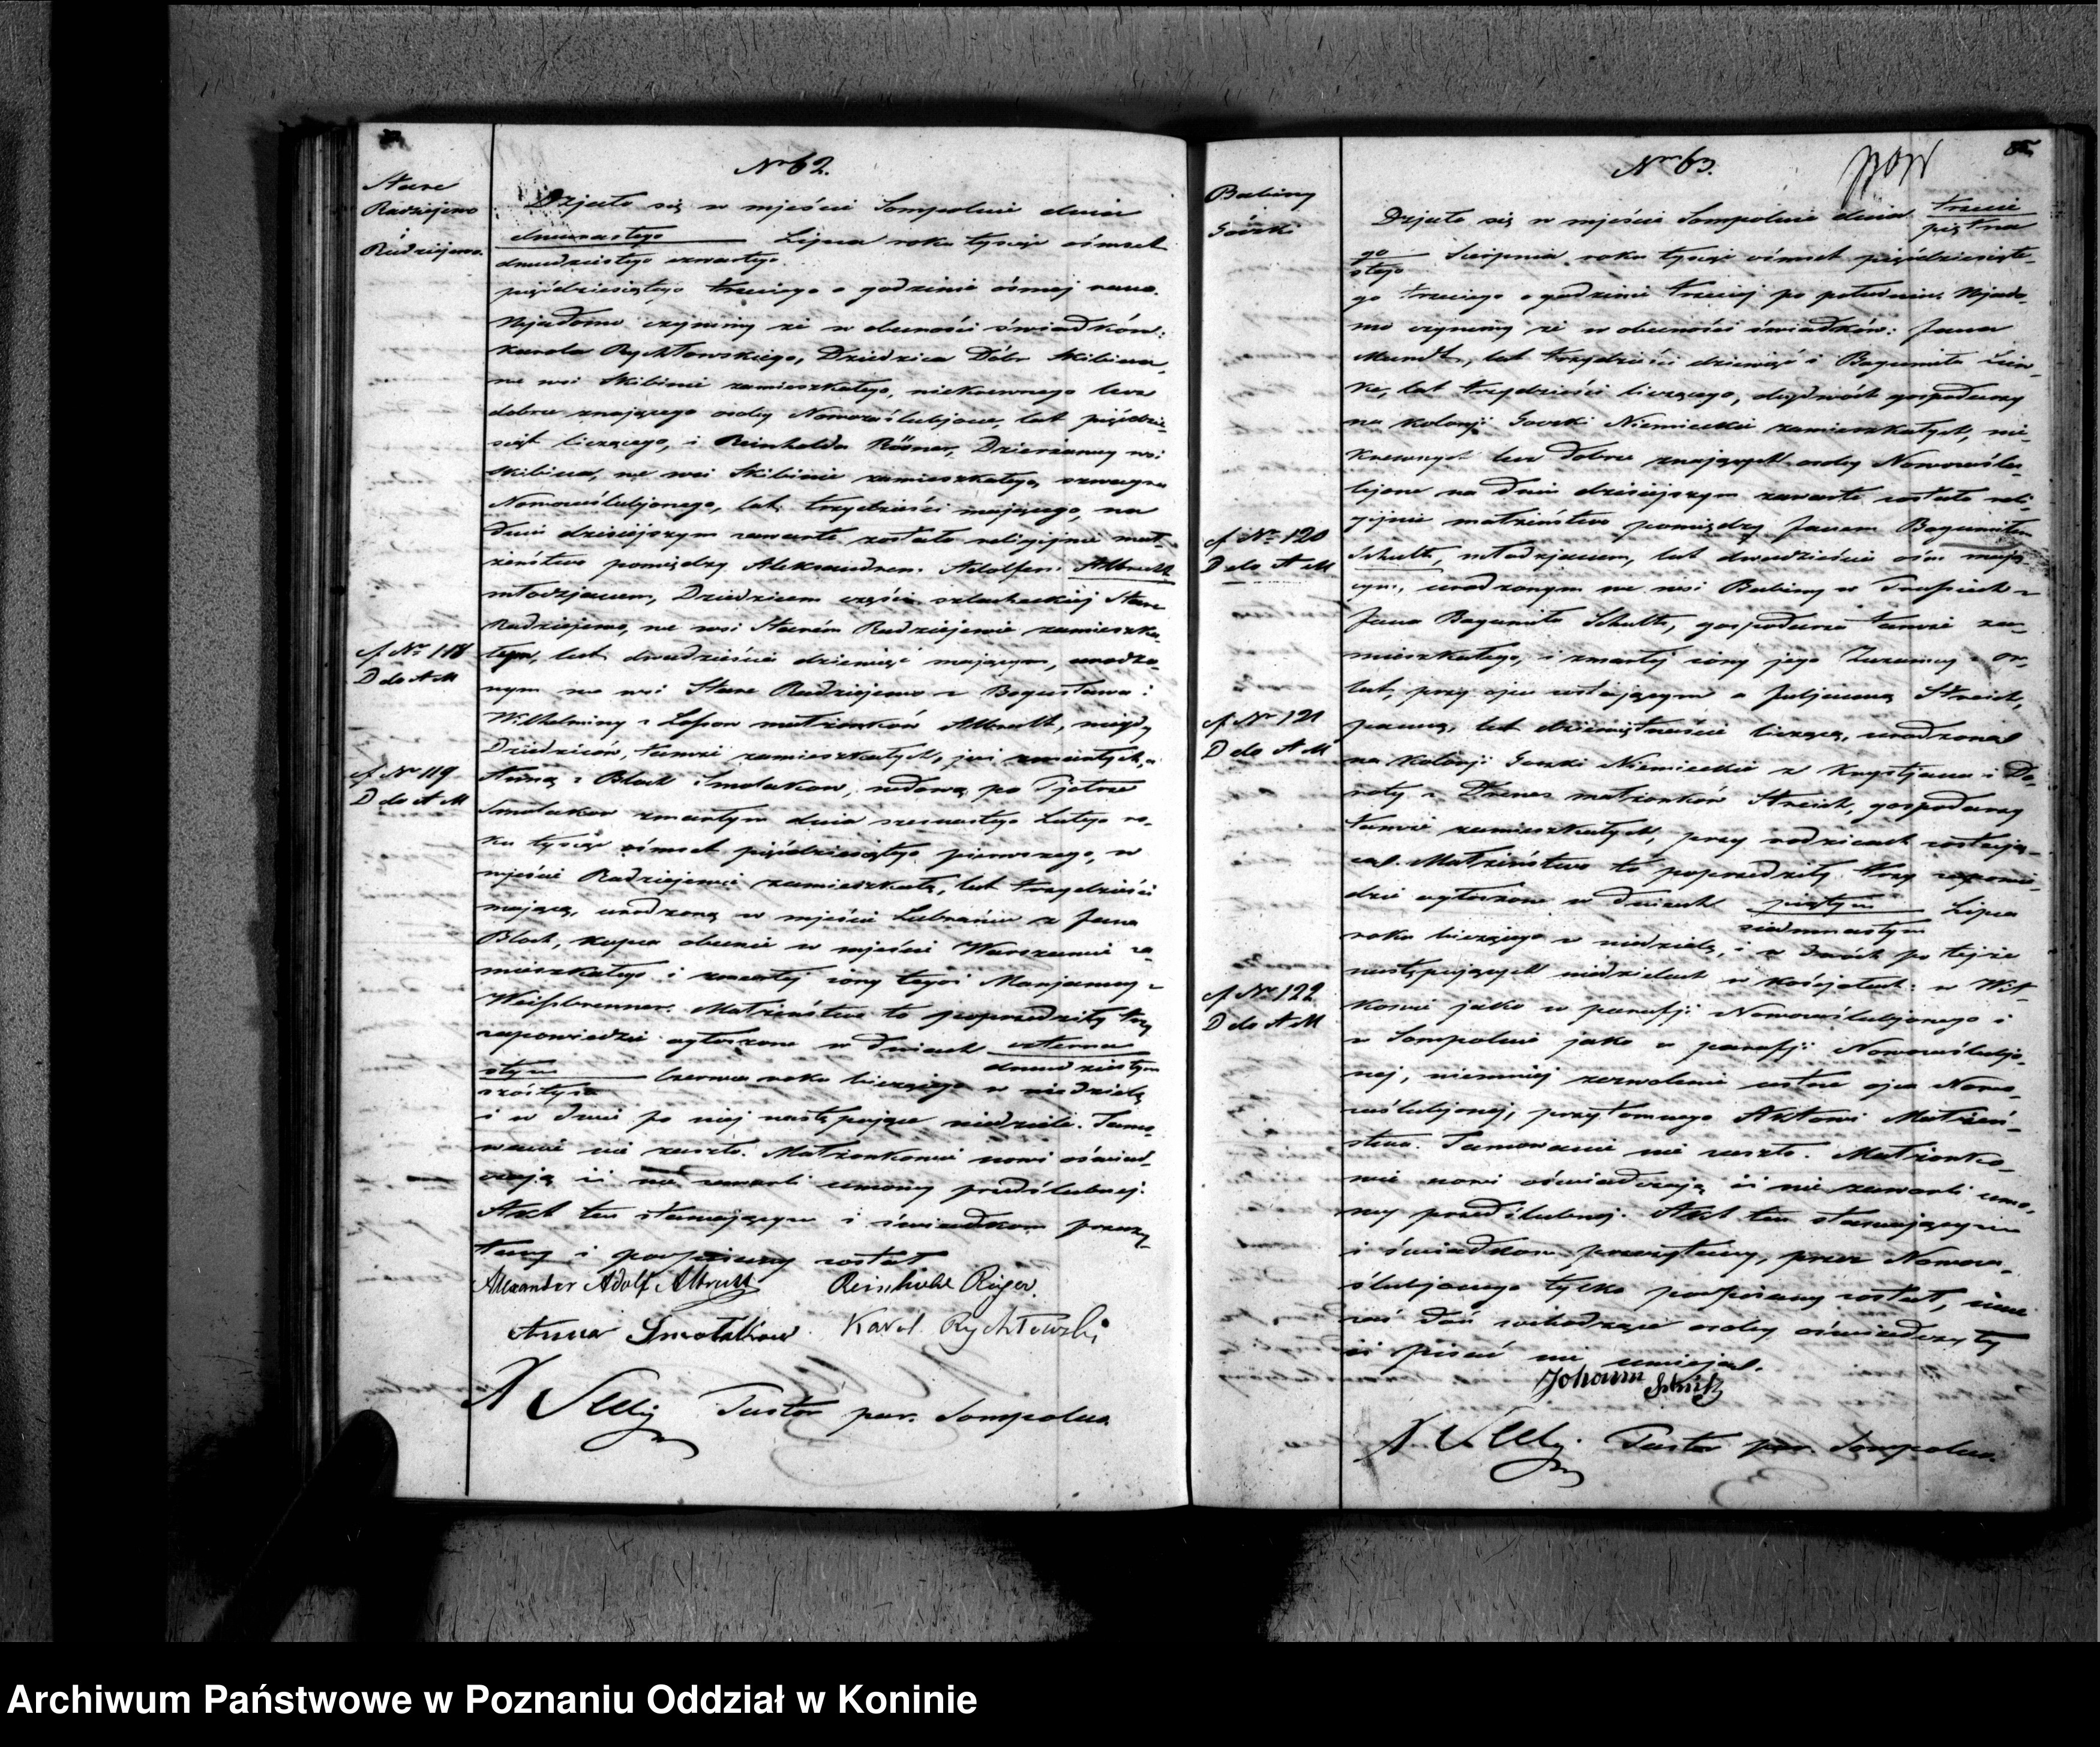 No 62.
Stare
Radziejewo
i
Radziejewo.
Działo się w mjeście Sompolnie dnia
dwunastego Lipca roku tysiąc ośmset
dwudziestego czwartego
pięćdziesiątego trzeciego o godzinie ósmej rano.
Wjadomo czynimy że w obecności świadków:
Karola Rychłowskiego, Dziedzica Dóbr Skibina,
we wsi Skibinie zamieszkałego, niekrewnego lecz
dobrze znającego osoby Nowozaślubjone, lat pięćdzie-
siąt liczącego, i Reinholda Dzierżawcy wsi
Skibina, we wsi Skibinie zamieszkałego, szwagra
Nowozaślubjonego, lat trzydzieści mającego, na
dniu dzisiejszym zawarte zostało religijne mał-
żeństwo pomiędzy Aleksandrem Adolfem
młodzjanem, Dziedzicem części szlacheckiej Stare
Radziejewo, we wsi Starém Radziejewie zamieszka-
łym, lat dwadzieścia dziewięć mającym, urodzo-
nym we wsi Stare Radziejewo z Bogusława i
Wilhelminy z małżonków niegdy
Dziedziców, tamże zamieszkałych, już zmarłych, a
Anną z Bloch Smolakow, wdową po Pjotrze
Smolakow zmarłym dnia szesnastego Lutego ro-
ku tysiąc ośmset pięćdziesiątego pierwszego, w
mjeście Radziejewie zamieszkałą, lat trzydzieści
mającą, urodzoną w mjeście Lubrańcu z Jana
Bloch, kupca obecnie w mjeście Warszawie za-
mieszkałego i zmarłej żony tegoż Marjanny z
Weissbrenner. Małżeństwo to poprzedziły trzy
zapowiedzie ogłoszone w dniach czterna
dwudziestym
stym Czerwca roku bieżącego w niedzielę
szóstym
i w dwie po niej następujące niedziele. Tamo-
wanie nie zaszło. Małżonkowie nowi oświad-
czają iż nie zawarli umowy przedślubnej.
Akt ten stawającym i świadkom przeczy-
tany i podpisany został
Alexander Adolf
Reinhold
Anna Smolakow
Karol Rychłowski
Pastor par. Sompolna
f No 118
D do A M
f No 119
D do A M
No 63.
Babiny
Górki
Działo się w mjeście Sompolnie dnia trzecie
piętna
go
stego Sierpnia roku tysiąc ośmset pięćdziesiąte-
go trzeciego o godzinie trzeciej po południu. Wjado-
mo czynimy że w obecności świadków: Jana
lat trzydzieści dziewięć i Bogumiła
lat trzydzieści liczącego, obydwóch gospodarzy
na kolonji Gorki Niemieckie zamieszkałych, nie-
krewnych lecz dobrze znających osoby Nowozaślu-
bjone na dniu dzisiejszym zawarte zostało reli-
gijne małżeństwo pomiędzy Janem Bogumiłem
młodzjanem, lat dwadzieścia ośm mają-
cym, urodzonym we wsi Babiny w z
Jana Bogumiła gospodarza tamże za-
mieszkałego, i zmarłej żony jego Zuzanny z
przy ojcu zostającym a Juljanną Streich,
panną, lat dziewiętnaście liczącą, urodzoną
na kolonji Gorki Niemieckie z Krystjana i Do-
roty z małżonków Streich, gospodarzy
tamże zamieszkałych, przy rodzicach zostają-
cą. Małżeństwo to poprzedziły trzy zapowie-
dzie ogłoszone w dniach piątym Lipca
siedmnastym
roku bieżącego w niedzielę, i w dwóch po tejże
następujących niedzielach w kościołach: w Wit-
kowie jako w parafji Nowozaślubjonego i
w Sompolnie jako w parafji Nowozaślubjo-
nej, niemniej zezwolenie ustne ojca Nowo-
zaślubjonej, przytomnego Aktowi Małżeń-
stwa. Tamowanie nie zaszło. Małżonko-
wie nowi oświadczają iż nie zawarli umo-
wy przedślubnej. Akt ten stawającym
i świadkom przeczytany, przez Nowoza-
ślubjonego tylko podpisany został, inne
zaś doń wchodzące osoby oświadczyły
iż pisać nie umieją.
Johann
Pastor par. Sompolna.
f No 120
D do A M
f No 121
D do A M
f No 122
D do A M
Archiwum Państwowe w Poznaniu Oddział w Koninie